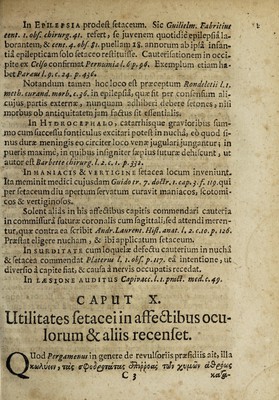 In EPILEPSIA prodest setaceum. Sic Guilielm. Fabritius
cent. 1. obs. chirurg. 41. refert, se juvenem quotidie epilepsiâ la-
borantem, & cent. 4. obs. 81. puellam 18. annorum ab ipsâ infan-
tiâ epilepticam solo setaceo restituisse. Cauterisationem in occi-
pite ex Celso confirmat Pernumia l. 6. p. 96. Exemplum etiam ha-
bet Paraeus l. p. t. 24. p. 436.
Notandum tamen hoc loco est praeceptum Rondeletii l. 1.
meth. curand. morb. c. 36. in epilepsiâ, quae fit per consensum ali-
cujus partis externae, nunquam adhiberi debere setones, nisi
morbus ob antiquitatem jam factus sit essentialis.
In HYDROCEPHALO, catarrhisque gravioribus sum-
mo cum successu fonticulus excitari potest in nuchâ, eò quod si-
nus durae meningis eo circiter loco venae jugulari jungantur; in
pueris maximè, in quibus insigniter saepius suturae dehiscunt, ut
autor est Barbette chirurg. l. 2. c. 1. p. 332.
In MANIACIS & VERTIGINE setacea locum inveniunt.
Ita meminit medici cujusdam Guido tr. 7. doctr. 1. cap. 3. f. 119. qui
per setaceum diu apertum servatum curavit maniacos, scotomi-
cos & vertiginosos.
Solent aliàs in his affectibus capitis commendari cauteria
in commissurâ suturae coronalis cum sagittali, sed attendi meren-
tur, quae contra ea scribit Andr. Laurent. Hist. anat. l. 2. c. 10. p. 126.
Praestat eligere nucham, & ibi applicatum setaceum.
In SURDITATE cum loquelae defectu cauterium in nuchâ
& setacea commendat Platerus l. 1. obs. p. 117. eâ intentione, ut
diversio à capite fiat, & causa à nervis occupatis recedat.
In LAESIONE AUDITUS Capivacc. l. 1. pract. med. c. 49.
CAPUT X.
Utilitates setacei in affectibus ocu-
lorum & aliis recenset.
QUod Pergamenus in genere de revulsoriis praesidiis ait, illa
κωλύειν, τὰς σφοδροτάτας ἐπιῤῥοὰς τῶν χυμῶν ἀθρόως
C 3